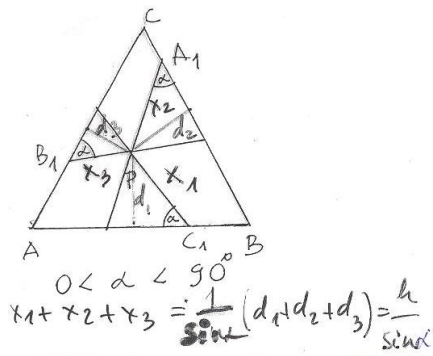 C
A₁
α
x₂
d₃
d₂
B₁
α
x₃
P
x₁
d₁
α
A
C₁
B
0 < α < 90°
x₁ + x₂ + x₃ = 1/sinα (d₁+d₂+d₃) = h/sinα